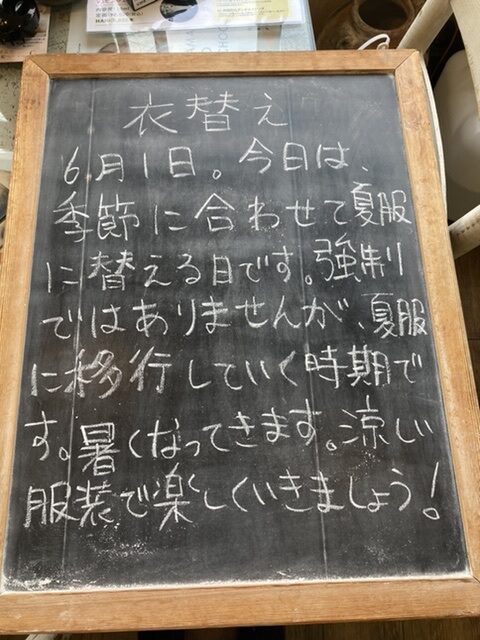 衣替え
6月1日。今日は、
季節に合わせて夏服
に替える日です。強制
ではありませんが、夏服
に移行していく時期で
す。暑くなってきます。涼しい
服装で楽しくいきましょう!